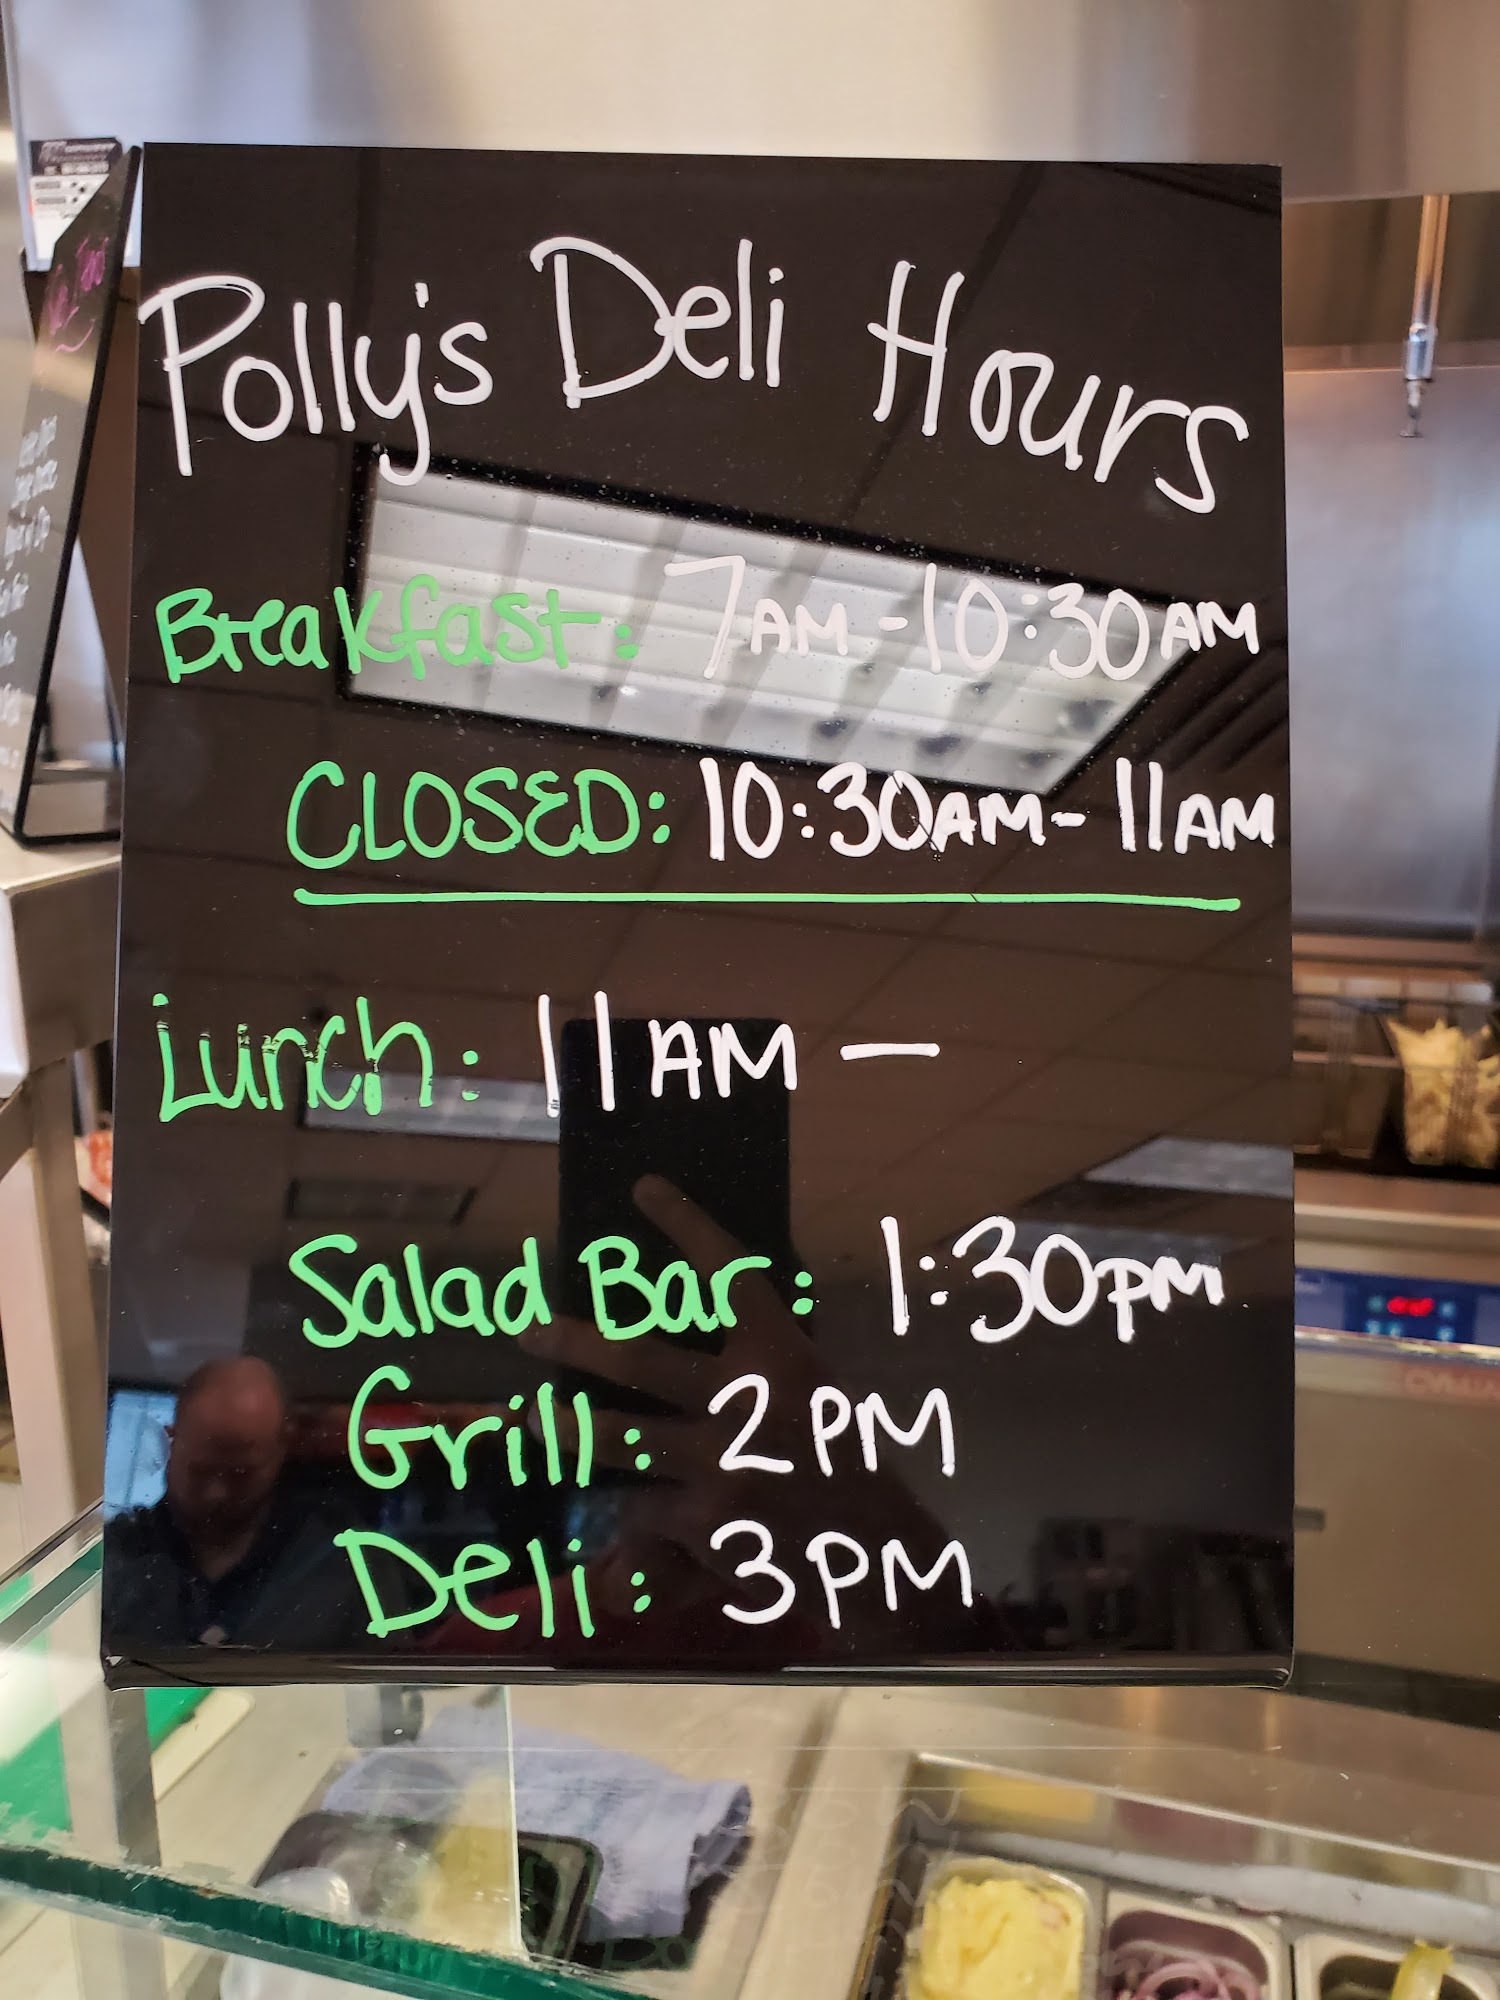 Polly's Deli Hours
Breakfast: 7AM - 10:30AM
CLOSED: 10:30AM - 11AM
Lunch: 11AM —
Salad Bar: 1:30PM
Grill: 2PM
Deli: 3PM